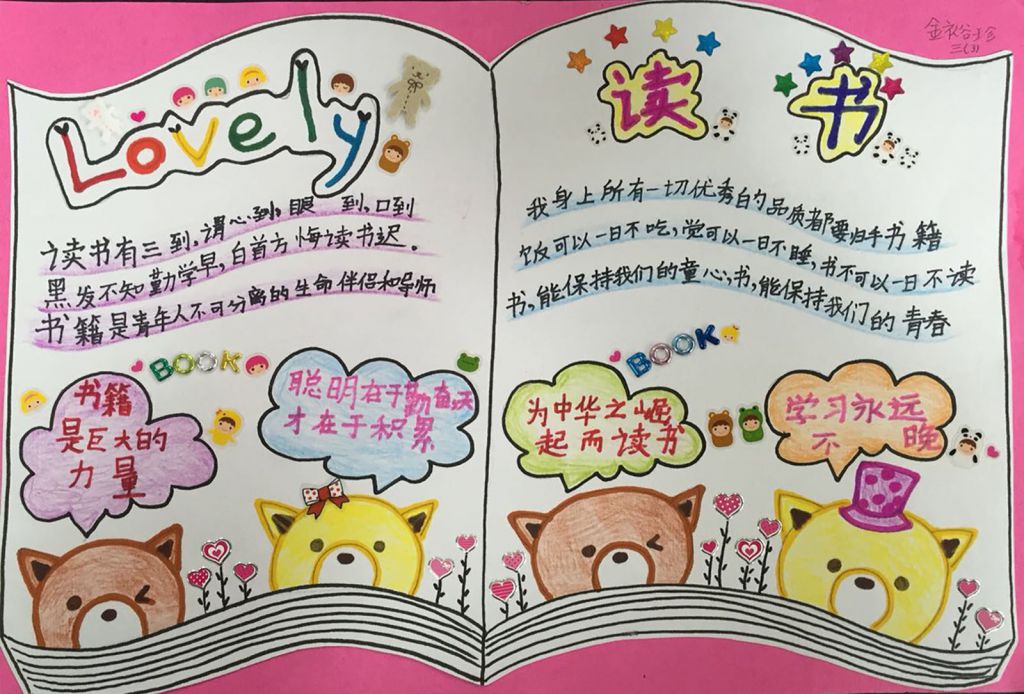 Lovely
读书有三到,谓心到,眼到,口到
黑发不知勤学早,白首方悔读书迟。
书籍是青年人不可分离的生命伴侣和导师
BOOK
书籍
是巨大的
力量
聪明在于勤奋,天
才在于积累
三(3)
读书
我身上所有一切优秀的品质都要归于书籍
饭可以一日不吃,觉可以一日不睡,书不可以一日不读
书,能保持我们的童心,书,能保持我们的青春
BOOK
为中华之崛
起而读书
学习永远
不晚